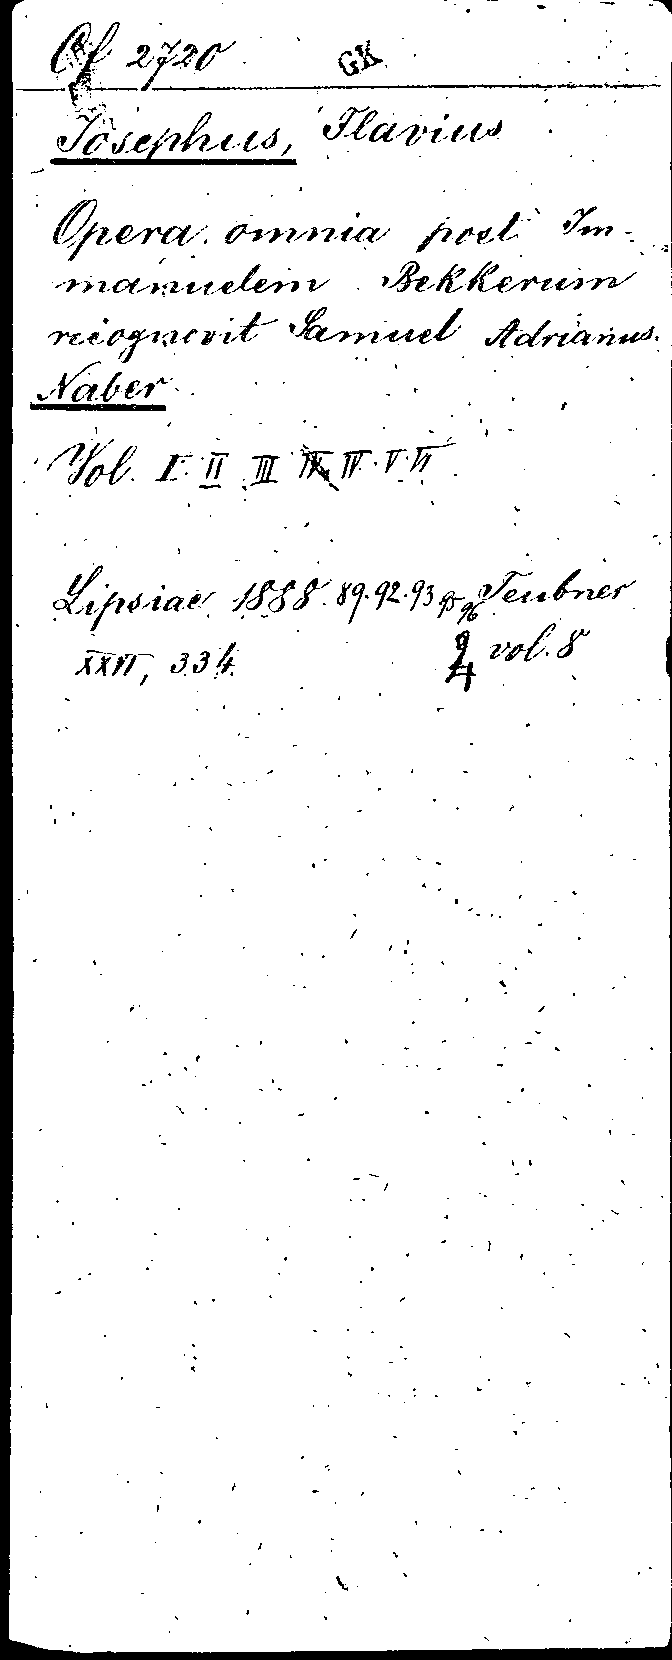 Cf 2720 GK
Josephus, Flavius
Opera omnia post Im-
manuelem Bekkerum
recognovit Samuel Adrianus
Naber
Vol. I. II III IV. V. VI
Lipsiae 1888. 89. 92. 93 95 96 Teubner
XXVI, 334. 4 vol. 8